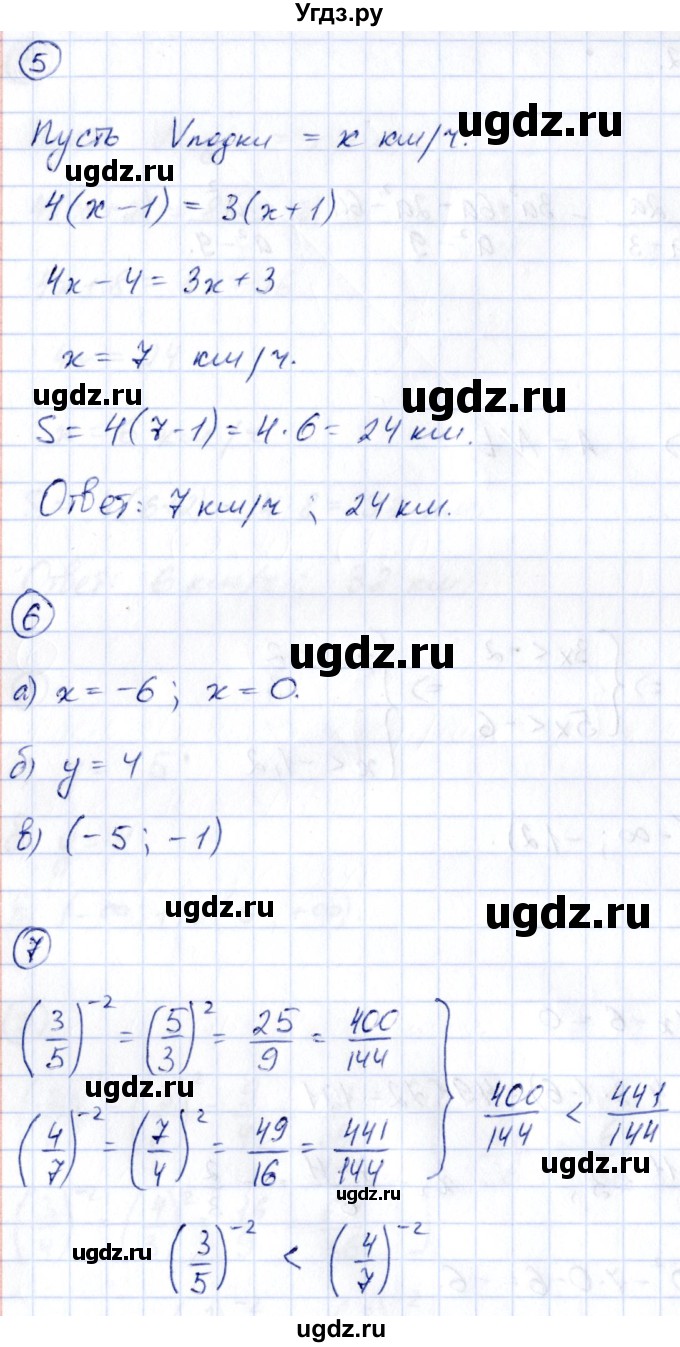 Угдз.ру
5
Пусть Vлодки = x км/ч.
ugdz.ru
ugdz.ru
4(x − 1) = 3(x + 1)
4x − 4 = 3x + 3
x = 7 км/ч.
ugdz.ru
ugdz.ru
S = 4(7 − 1) = 4 · 6 = 24 км.
Ответ: 7 км/ч ; 24 км.
6
ugdz.ru
а) x = −6 ; x = 0.
б) y = 4
в) (−5 ; −1)
ugdz.ru
ugdz.ru
7
(3/5)^−2 = (5/3)^2 = 25/9 = 400/144
ugdz.ru
(4/7)^−2 = (7/4)^2 = 49/16 = 441/144
400/144 < 441/144
ugdz.ru
ugdz.ru
ugdz.ru
(3/5)^−2 < (4/7)^−2
ugdz.ru